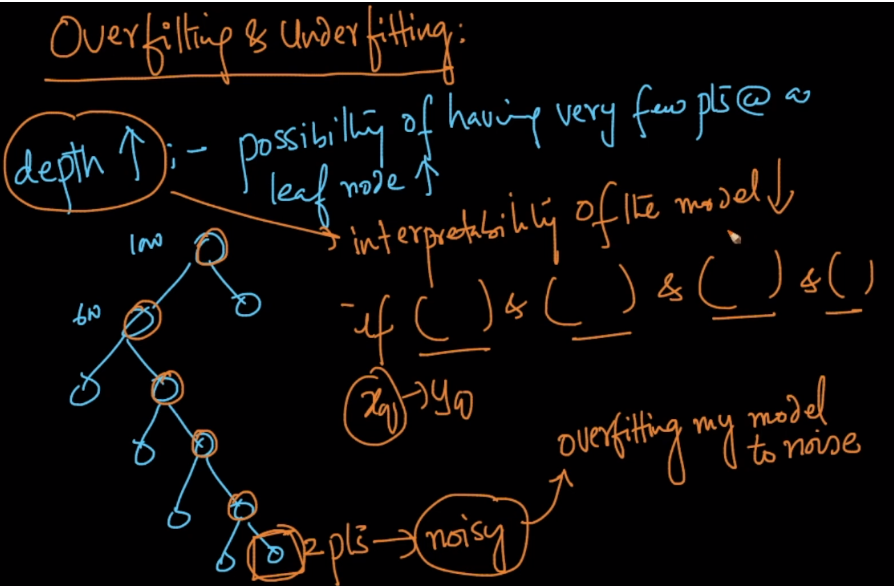 Overfitting & Underfitting:
depth ↑ :- possibility of having very few pts @ a
leaf node ↑
interpretability of the model ↓
if ( ) & ( ) & ( ) & ( )
xq → yq
1000
600
overfitting my model
to noise
2 pts → noisy